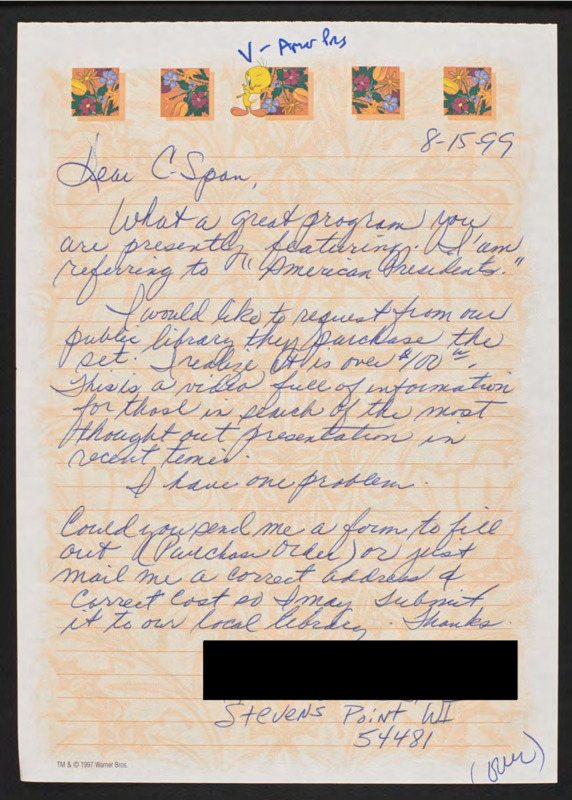 V - Amer Prs
8-15-99
Dear C-Span,
What a great program you
are presently featuring. I am
referring to "American Presidents."
I would like to request from our
public library they purchase the
set. I realize it is over $100.00.
This is a video full of information
for those in search of the most
thought out presentation in
recent times.
I have one problem.
Could you send me a form to fill
out (Purchase Order) or just
mail me a correct address &
correct cost so I may submit
it to our local library. Thanks.
Stevens Point, WI
54481
(over)
TM & © 1997 Warner Bros.